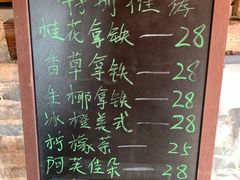 特别推荐
桂花拿铁——28
香草拿铁——28
生椰拿铁——28
冰橙美式——28
柠檬茶——25
阿芙佳朵——28